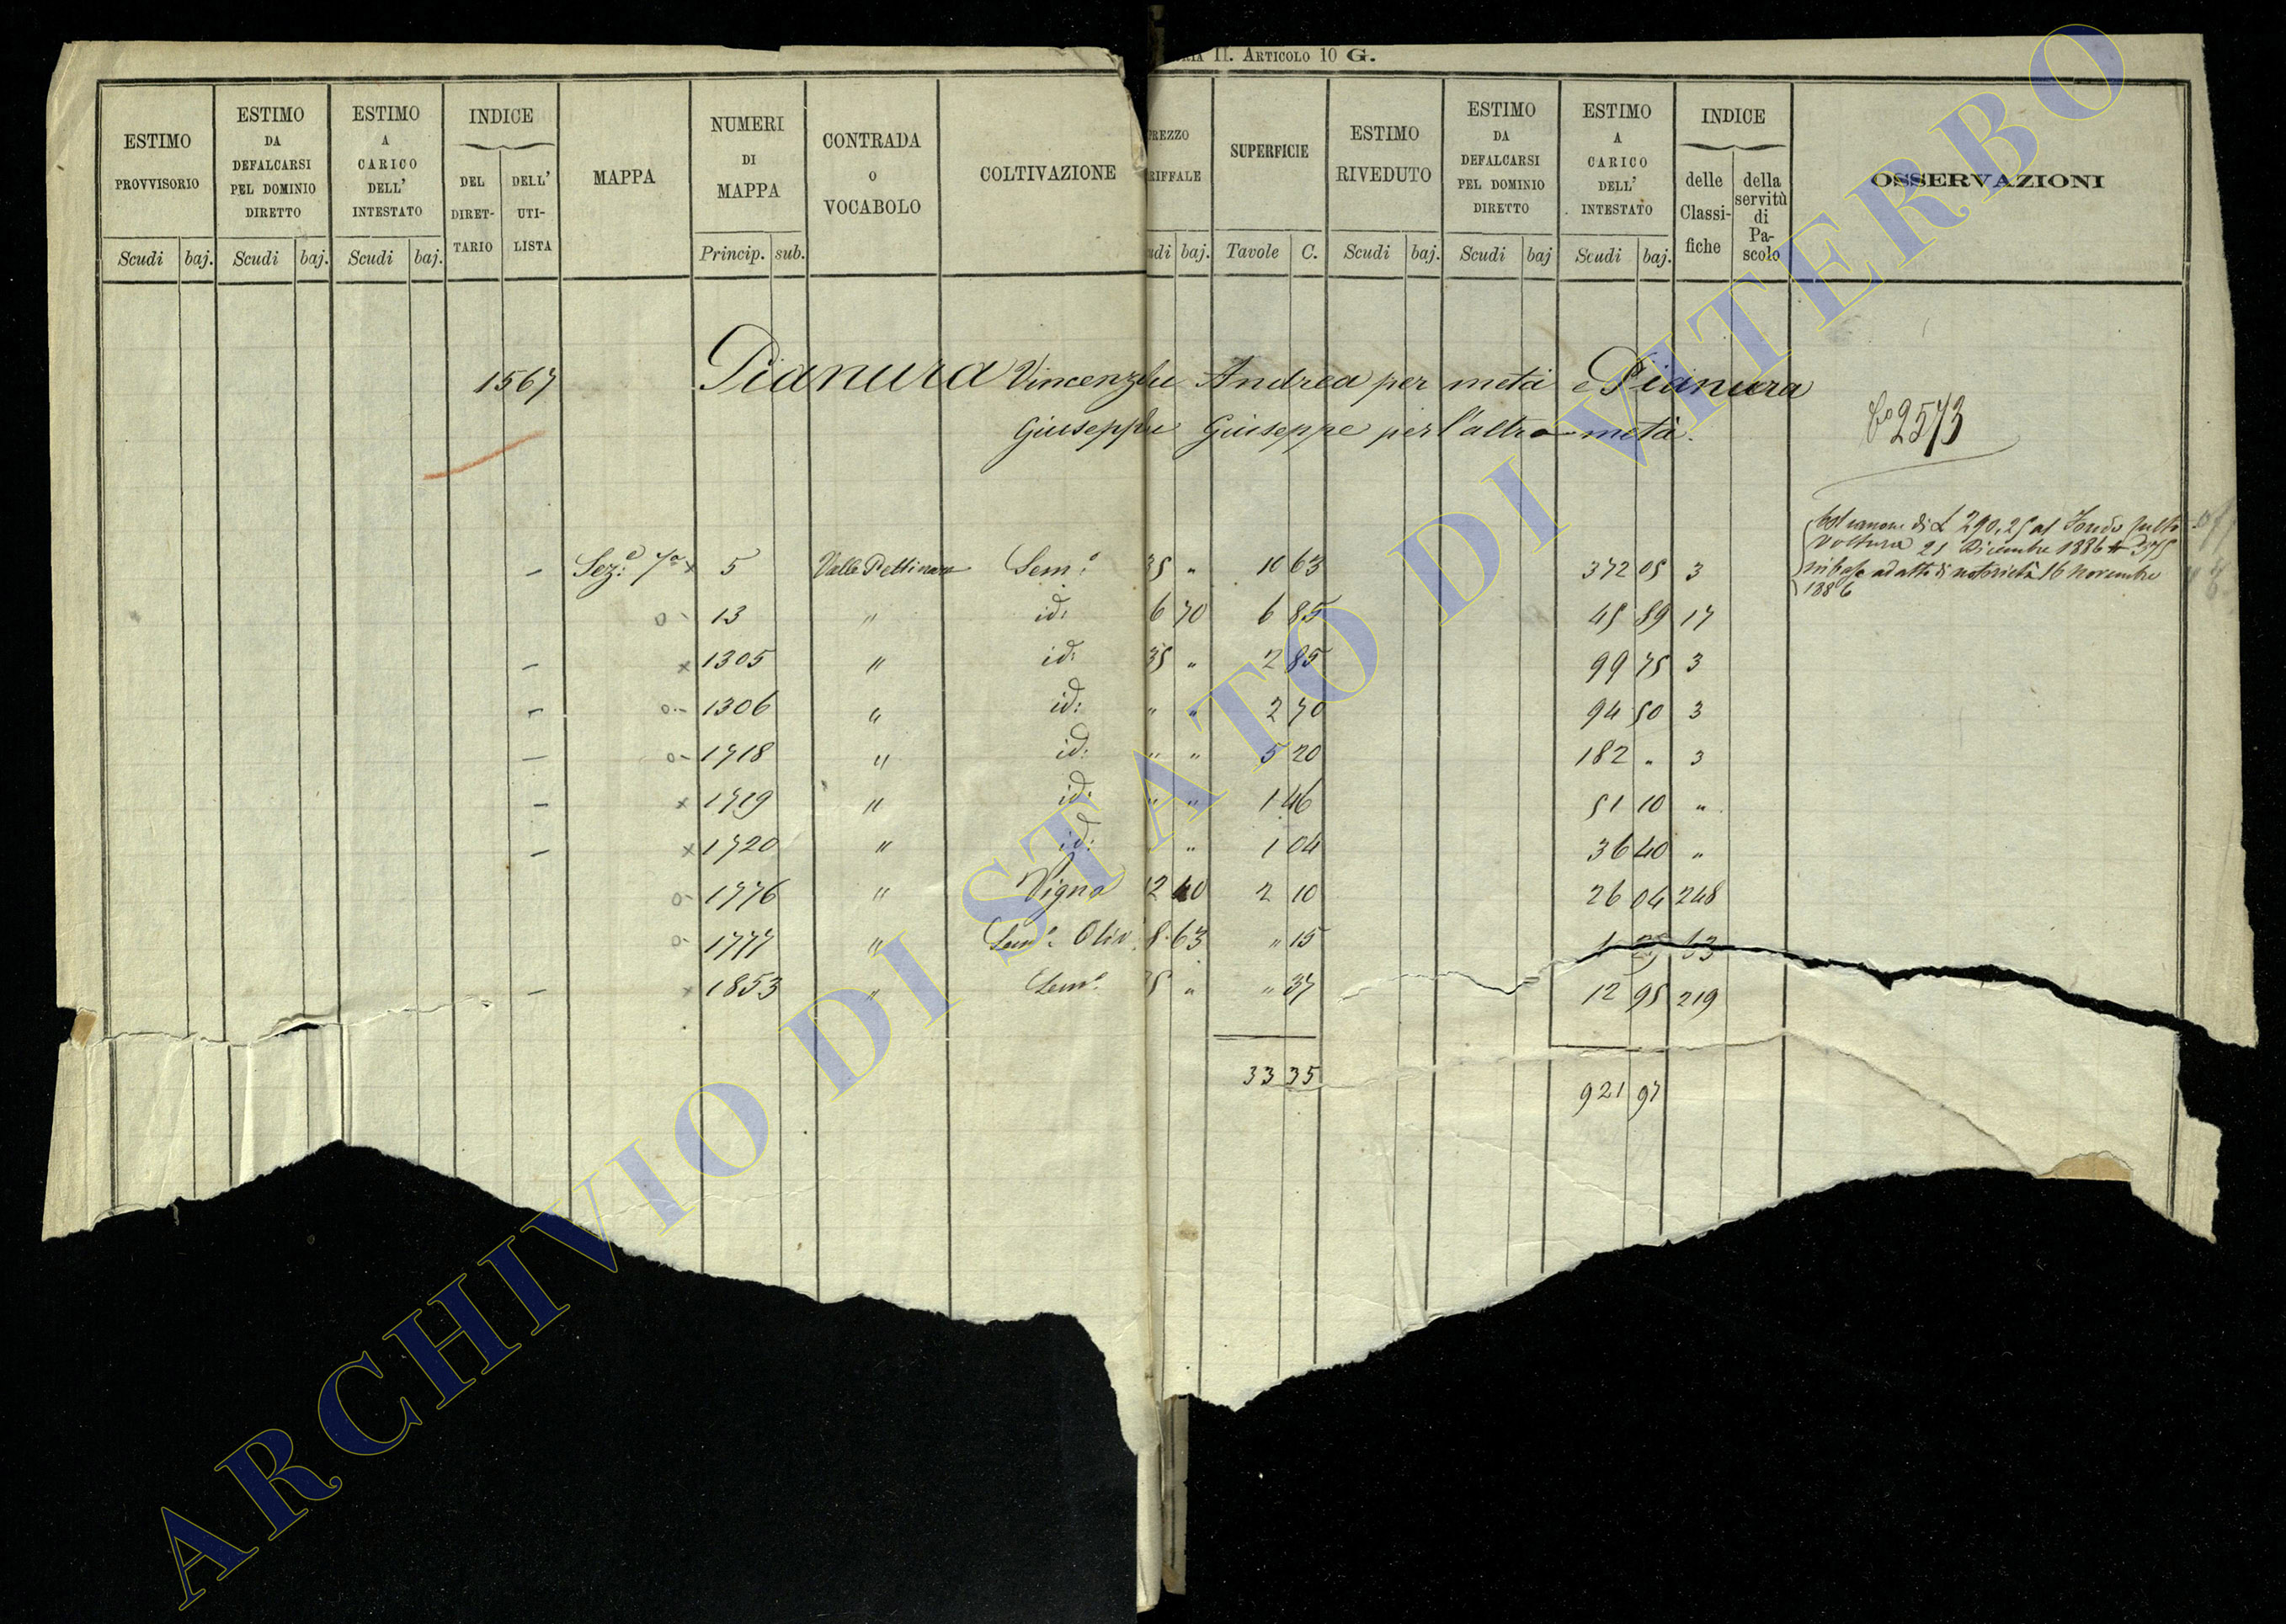 II. ARTICOLO 10 G.
ESTIMO PROVVISORIO
Scudi baj.
ESTIMO DA DEFALCARSI PEL DOMINIO DIRETTO
Scudi baj.
ESTIMO A CARICO DELL' INTESTATO
Scudi baj.
INDICE
DEL DIRET-TARIO
DELL' UTI-LISTA
MAPPA
NUMERI DI MAPPA
Princip. sub.
CONTRADA O VOCABOLO
COLTIVAZIONE
PREZZO RIFFALE
udi baj.
SUPERFICIE
Tavole C.
ESTIMO RIVEDUTO
Scudi baj.
ESTIMO DA DEFALCARSI PEL DOMINIO DIRETTO
Scudi baj
ESTIMO A CARICO DELL' INTESTATO
Scudi baj.
INDICE
delle Classi-fiche
della servitù di Pa-scolo
OSSERVAZIONI
1567 Pianura Vincenzo fu Andrea per metà e Pianura
Giuseppe fu Giuseppe per l'altra metà.
2573
Col canone di L 290,25 al Fondo Culto
Voltura 21 Dicembre 1886 375
in base ad atto di notorietà 16 Novembre
1886
- Sez.e 7a x 5 Valle Pettinara Sem.o 35 " 10 63 372 05 3
o- 13 " id: 6 70 6 85 45 89 17
- x 1305 " id: 35 " 2 85 99 75 3
- o- 1306 " id: " " 2 70 94 50 3
- o- 1718 " id: " " 5 20 182 " 3
- x 1719 " id: " " 1 46 51 10 "
- x 1720 " id: " 1 04 36 40 "
o- 1776 " Vigna 12 40 2 10 26 04 248
o- 1777 " Sem.o Oliv. 8 63 " 15 1 29 53
- x 1853 " Sem.o 35 " " 37 12 95 219
33 35 921 97
ARCHIVIO DI STATO DI VITERBO